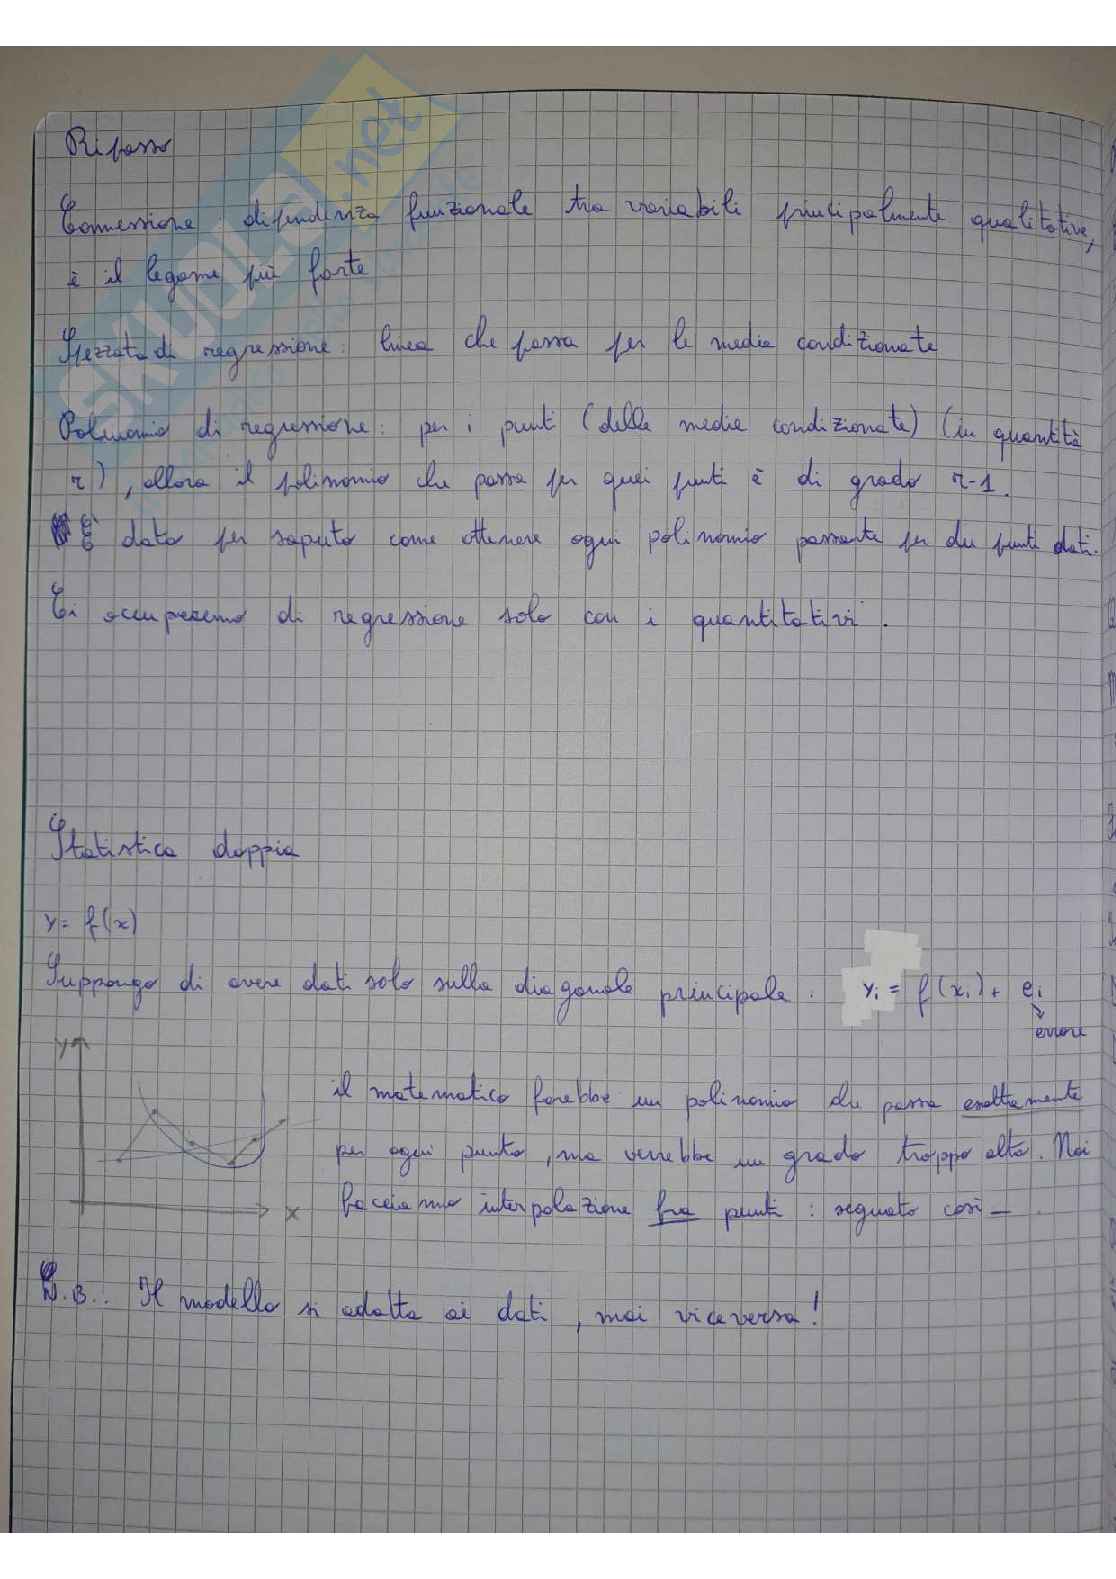 Ripasso
Connessione: dipendenza funzionale tra variabili principalmente qualitative,
è il legame più forte
Spezzata di regressione: linea che passa per le medie condizionate
Polinomio di regressione: per i punti (delle medie condizionate) (in quantità
r), allora il polinomio che passa per quei punti è di grado r-1.
È dato per saputo come ottenere ogni polinomio passante per due punti dati.
Ci occuperemo di regressione solo con i quantitativi.
Statistica doppia
y = f(x)
Suppongo di avere dati solo sulla diagonale principale. yi = f(xi) + ei
errore
y
il matematico farebbe un polinomio che passa esattamente
per ogni punto, ma verrebbe un grado troppo alto. Noi
facciamo interpolazione fra punti: segnato così —.
x
N.B.: Il modello si adatta ai dati, mai viceversa!
SKUOLA.net